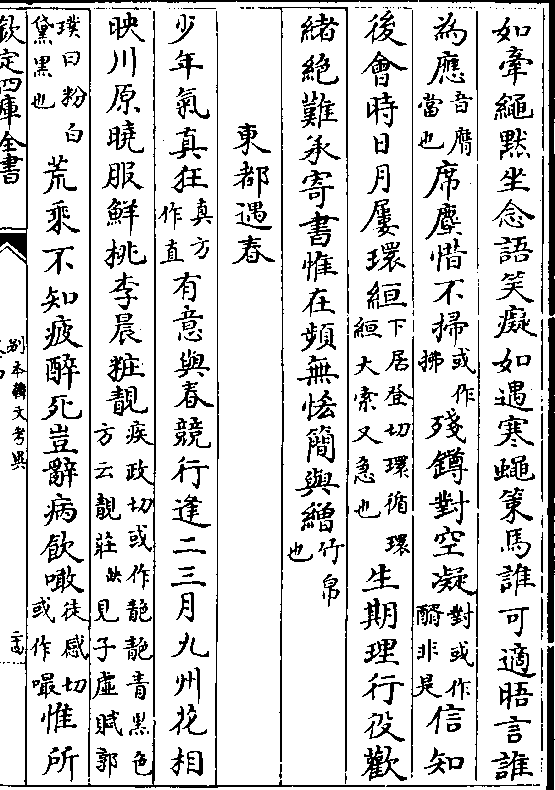 如牽繩默坐念語笑癡如遇寒蠅策馬誰可適晤言誰
為應音膺當也席塵惜不掃或作拂殘罇對空凝對或作酧非是信知
後會時日月屢環絙下居登切環循環絙大索又急也生期理行役歡
緒絶難承寄書惟在頻無恡簡與繒竹帛也
東都遇春
少年氣真狂真方作直有意與春競行逢二三月九州花相
映川原曉服鮮桃李晨粧靚疾政切或作靘靘青黑色方云靚莊此見子虛賦郭
璞曰粉白黛黑也荒乘不知疲醉死豈辭病飲噉徒感切或作嘬惟所
欽定四庫全書
别本韓文考異